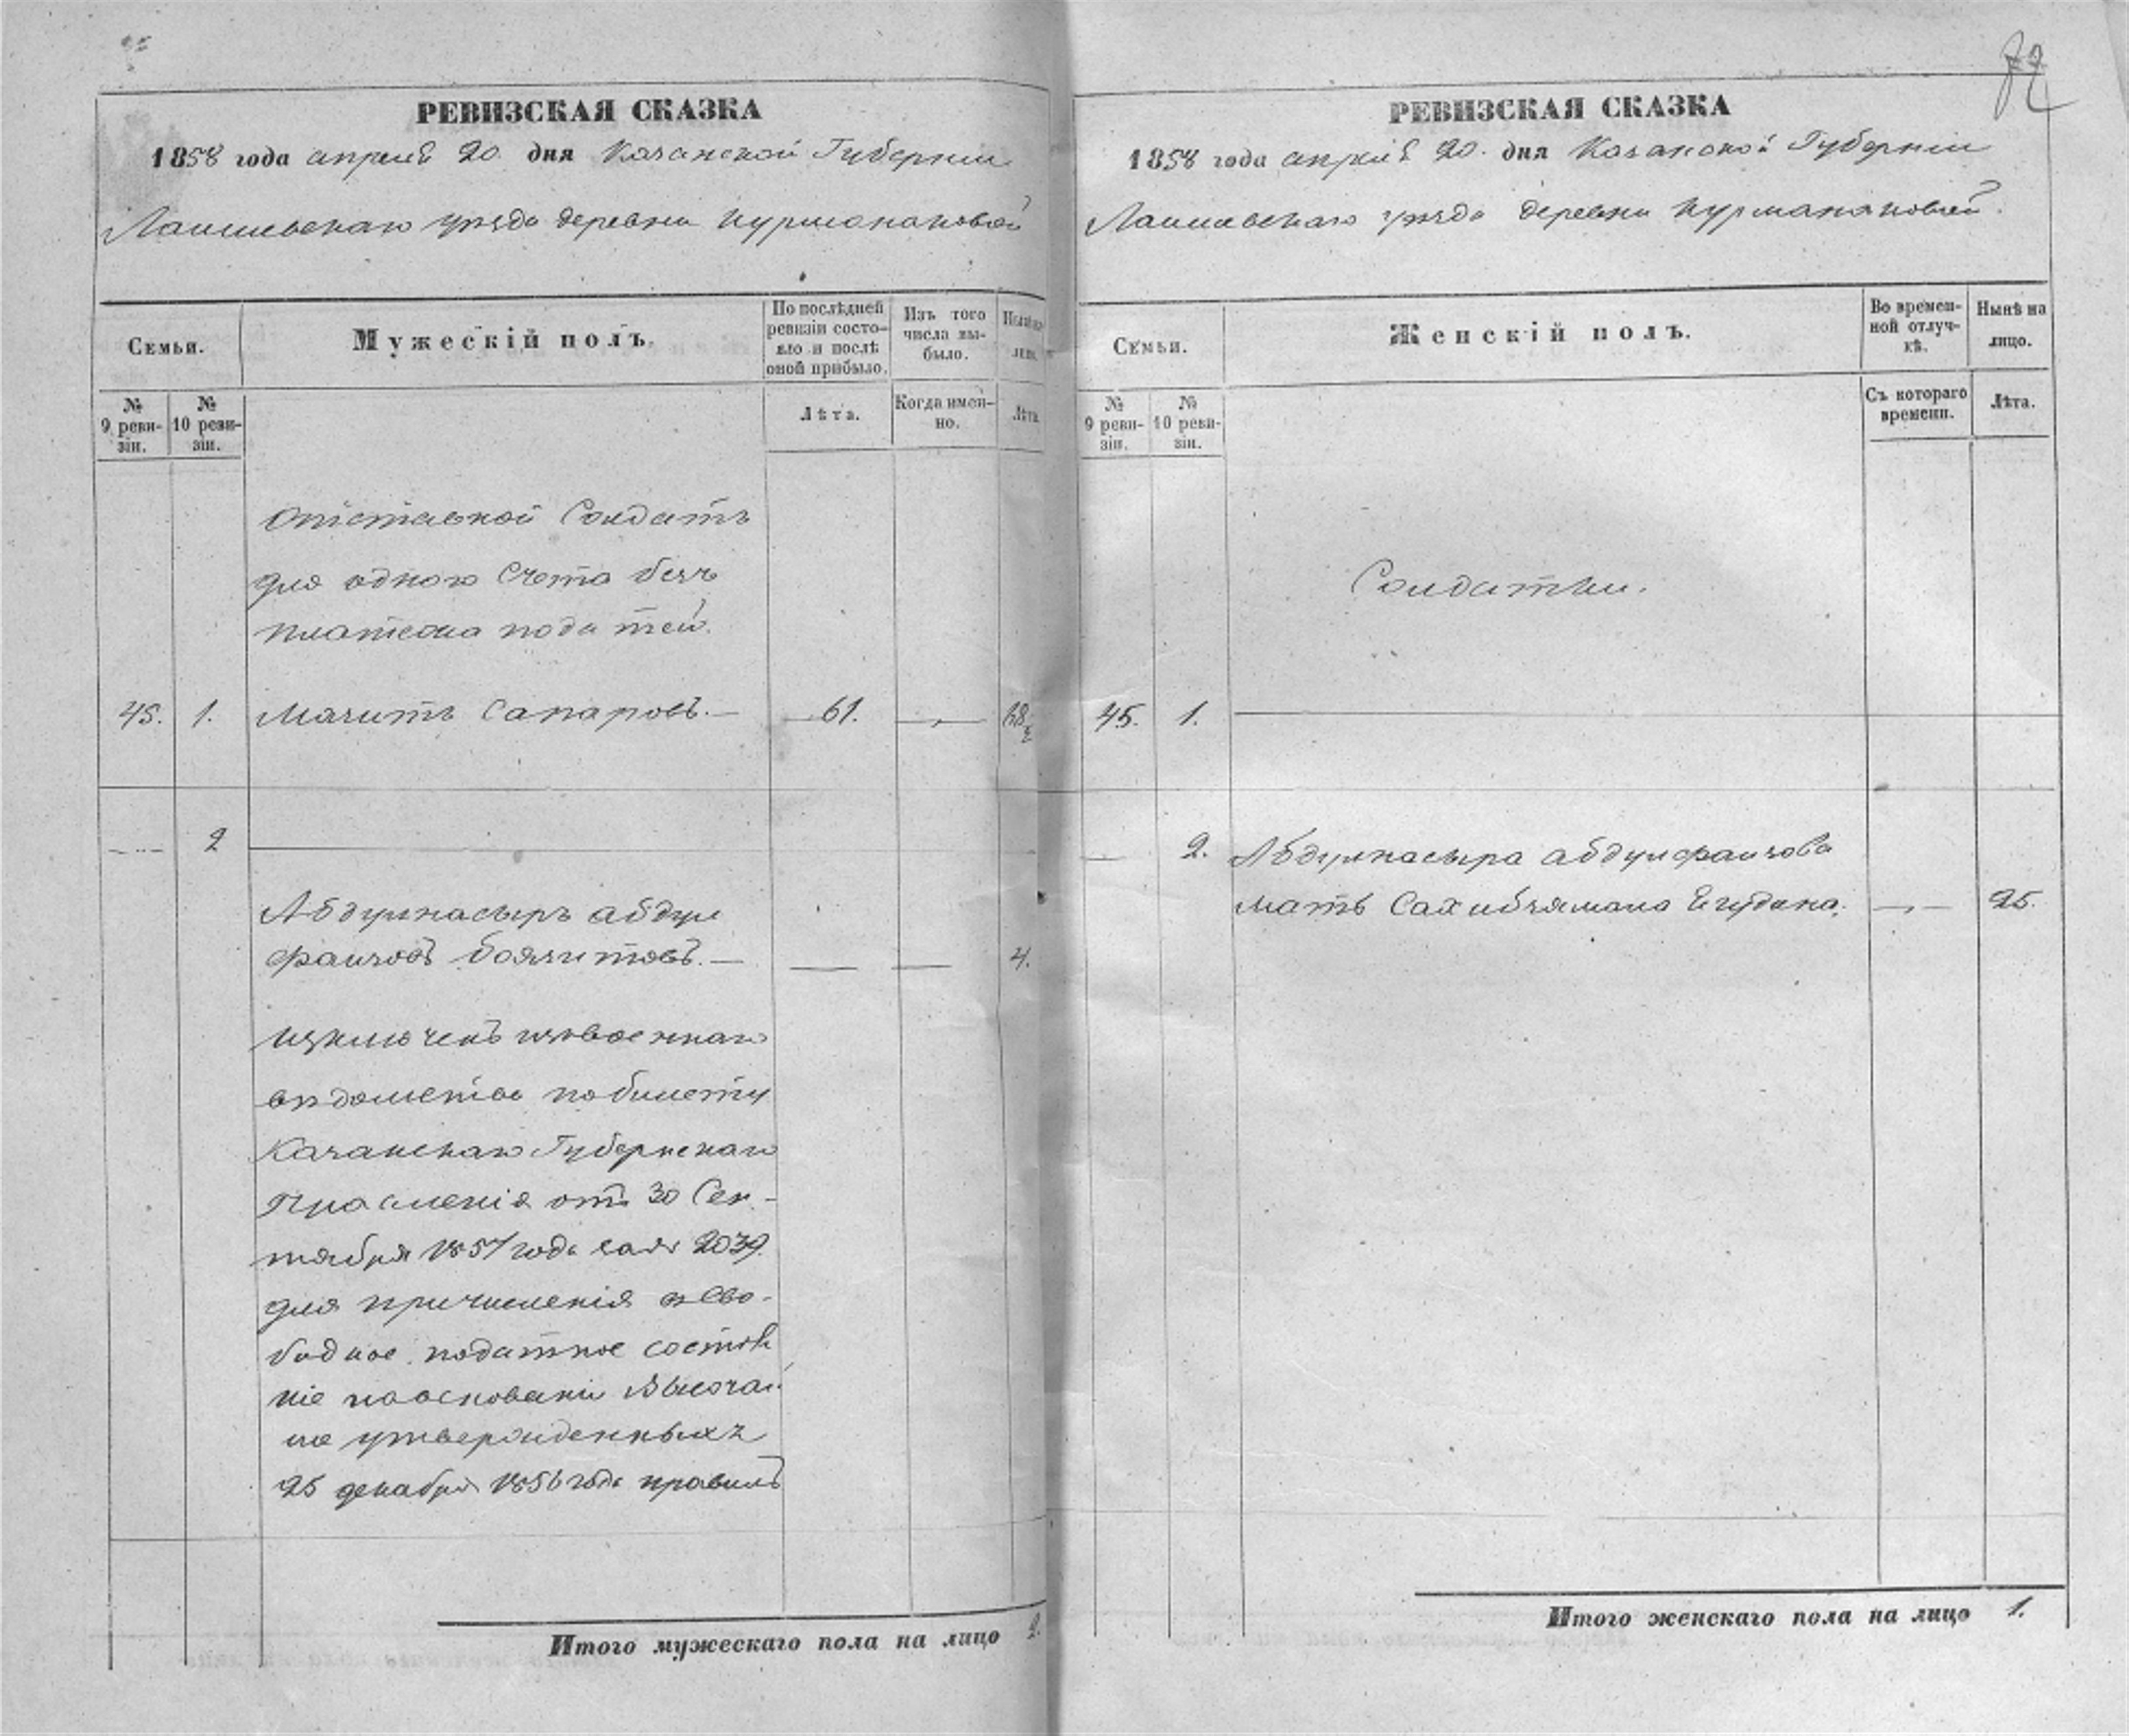 РЕВИЗСКАЯ СКАЗКА
1858 года апреля 20 дня Казанской Губернии
Лаишевскаго уѣзда деревни Курманаковой
Семьи.
Мужескій полъ.
По послѣдней ревизіи состояло и послѣ оной прибыло.
Изъ того числа выбыло.
№ 9 ревизіи.
№ 10 ревизіи.
Лѣта.
Когда именно.
Лѣта.
Отставной Солдатъ
для одного Счета безъ
платежа податей.
45. 1. Мазитъ Сапаровъ.— 61.
2
Абдулнасыръ абдул
фаизовъ Баязитовъ.— 4.
Изключенъ извоеннаго
вѣдомства побилету
Казанскаго Губернскаго
Правленія отъ 30 Сен-
тября 1857 года за № 2039.
для причисленія въ Сво-
бодное податное состоя
ніе наоснованіи Высочай
ше утвержденныхъ
25 декабря 1856 года правилъ
Итого мужескаго пола на лицо 2.
РЕВИЗСКАЯ СКАЗКА
1858 года апреля 20. дня Казанской Губерніи
Лаишевскаго уѣзда деревни Курманаковой.
Семьи.
Женскій полъ.
Во временной отлучкѣ.
Нынѣ на лицо.
№ 9 ревизіи.
№ 10 ревизіи.
Съ котораго времени.
Лѣта.
Солдатки.
45. 1.
2. Абдулнасыра абдулфаизова
мать Сахибзямала Ягудина. 25.
Итого женскаго пола на лицо 1.